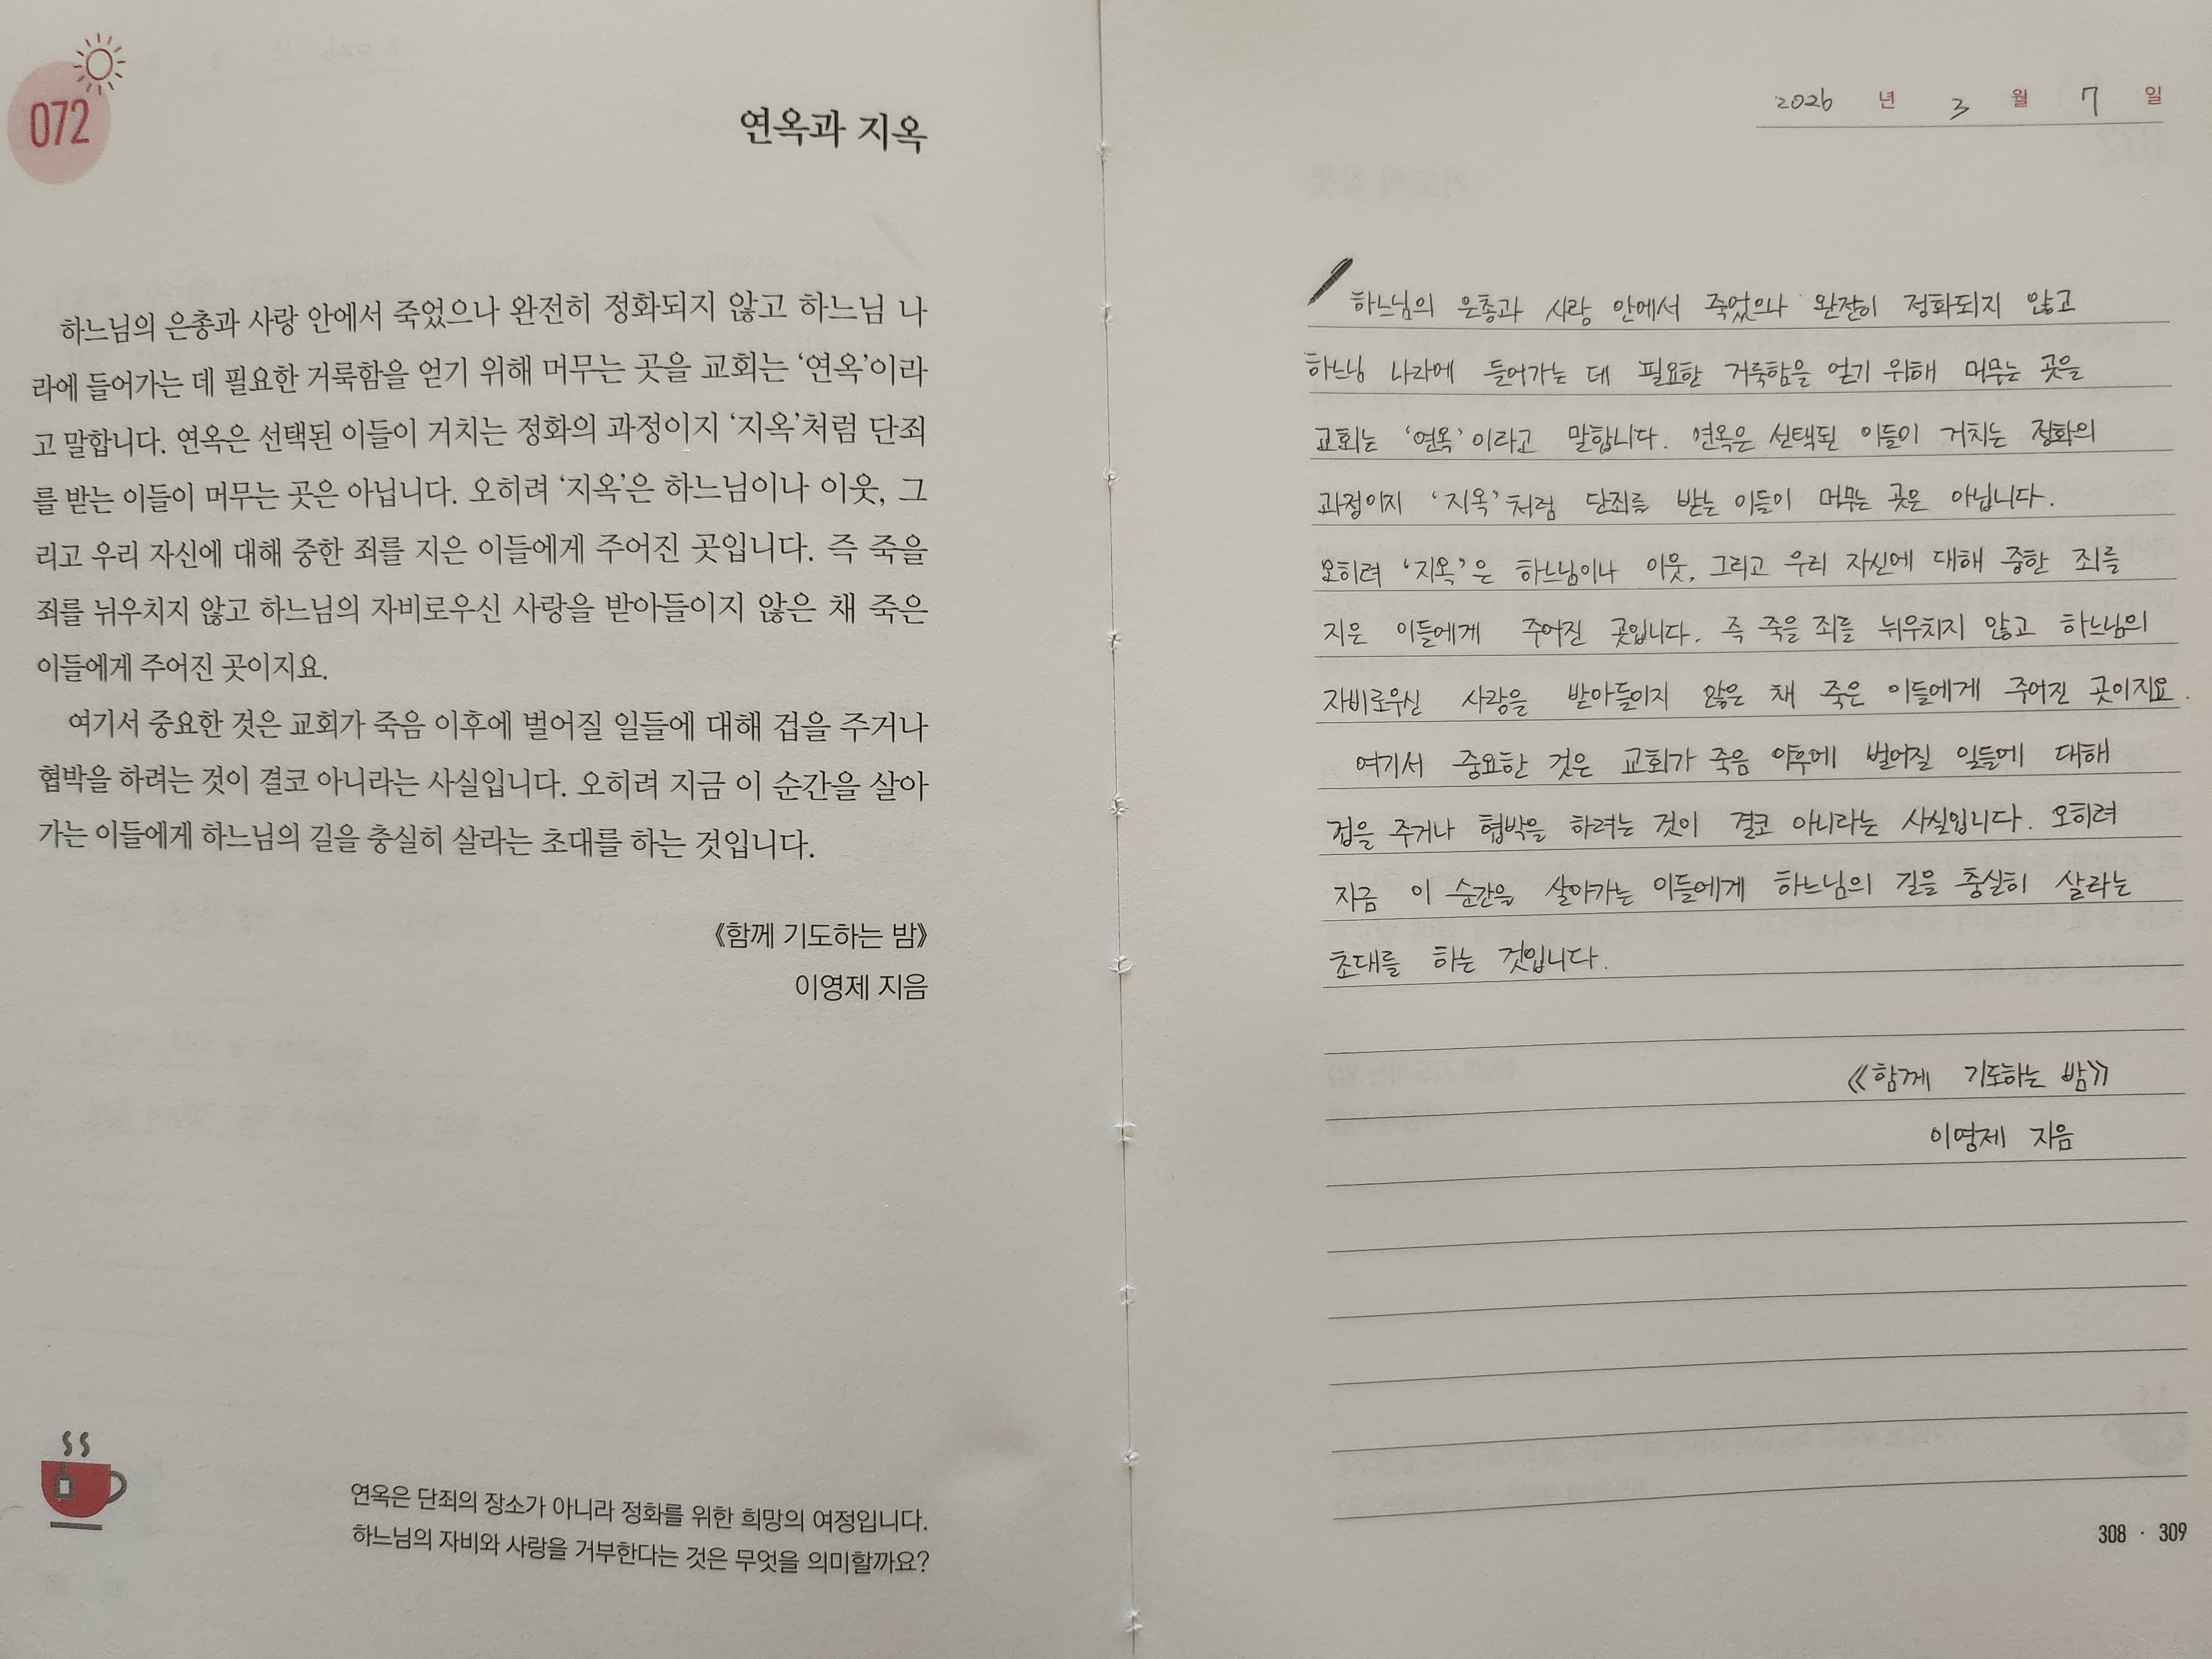 072
연옥과 지옥
하느님의 은총과 사랑 안에서 죽었으나 완전히 정화되지 않고 하느님 나
라에 들어가는 데 필요한 거룩함을 얻기 위해 머무는 곳을 교회는 ‘연옥’이라
고 말합니다. 연옥은 선택된 이들이 거치는 정화의 과정이지 ‘지옥’처럼 단죄
를 받는 이들이 머무는 곳은 아닙니다. 오히려 ‘지옥’은 하느님이나 이웃, 그
리고 우리 자신에 대해 중한 죄를 지은 이들에게 주어진 곳입니다. 즉 죽을
죄를 뉘우치지 않고 하느님의 자비로우신 사랑을 받아들이지 않은 채 죽은
이들에게 주어진 곳이지요.
여기서 중요한 것은 교회가 죽음 이후에 벌어질 일들에 대해 겁을 주거나
협박을 하려는 것이 결코 아니라는 사실입니다. 오히려 지금 이 순간을 살아
가는 이들에게 하느님의 길을 충실히 살라는 초대를 하는 것입니다.
《함께 기도하는 밤》
이영제 지음
연옥은 단죄의 장소가 아니라 정화를 위한 희망의 여정입니다.
하느님의 자비와 사랑을 거부한다는 것은 무엇을 의미할까요?
2026 년 3 월 7 일
하느님의 은총과 사랑 안에서 죽었으나 완전히 정화되지 않고
하느님 나라에 들어가는 데 필요한 거룩함을 얻기 위해 머무는 곳을
교회는 ‘연옥’이라고 말합니다. 연옥은 선택된 이들이 거치는 정화의
과정이지 ‘지옥’처럼 단죄를 받는 이들이 머무는 곳은 아닙니다.
오히려 ‘지옥’은 하느님이나 이웃, 그리고 우리 자신에 대해 중한 죄를
지은 이들에게 주어진 곳입니다. 즉 죽을 죄를 뉘우치지 않고 하느님의
자비로우신 사랑을 받아들이지 않은 채 죽은 이들에게 주어진 곳이지요.
여기서 중요한 것은 교회가 죽음 이후에 벌어질 일들에 대해
겁을 주거나 협박을 하려는 것이 결코 아니라는 사실입니다. 오히려
지금 이 순간을 살아가는 이들에게 하느님의 길을 충실히 살라는
초대를 하는 것입니다.
《함께 기도하는 밤》
이영제 지음
308 · 309